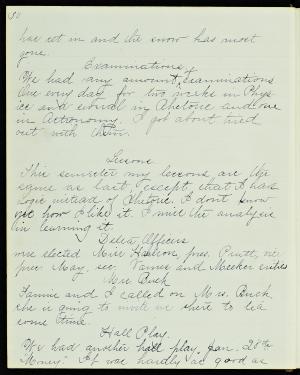 has set in and the snow has most
gone.
Examinations.
We had any amount examinations
One every day for two weeks in Phys
ics and several in Rhetoric and one
in Astronomy. I got about tired
out with them.
Lessons
This semester my lessons are the
same as last, except that I has
Logic instead of Rhetoric. I don't know
yet how I like it. I omit the analysis
in learning it.
Delta Officers
were elected Miss pres. Pruitt, vice
pres. May, sec. and
Mrs. Buck
Fannie and I called on Mrs. Buck
she is going to invite us there to tea
some time.
Hall Play
We had another hall play Jan. 28th
"Money." It was hardly as good as